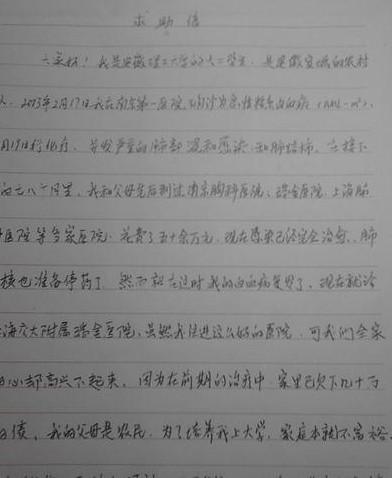 求助信
大家好！我是安徽理工大学的大二学生，是安徽宣城的农村
人，2013年2月17日我在南京第一医院确诊为急性粒系白血病（AML-M2），
月19日行化疗，并发严重的肺部混和感染和肺结核，在接下
的七八个月里，我和父母先后到过南京胸科医院、瑞金医院、上海肺
医院等多家医院，花费了五十余万元，现在感染已经完全治愈，肺
核也准备停药了，然而就在这时我的白血病复发了，现在就诊
海交大附属瑞金医院，虽然我住进这么好的医院，可我们全家
的心却高兴不起来，因为在前期的治疗中，家里已欠下几十万
的债，我的父母是农民，为了培养我上大学，家庭本就不富裕，